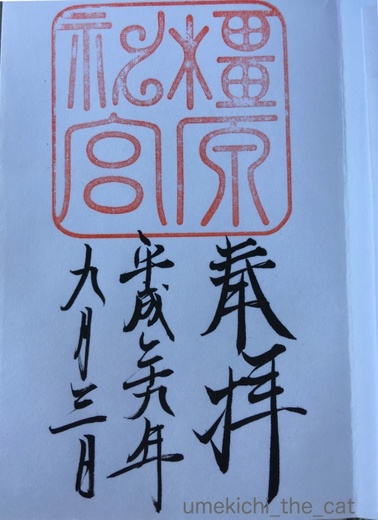 橿原
神宮
奉拝
平成二十九年
九月三日
umekichi_the_cat